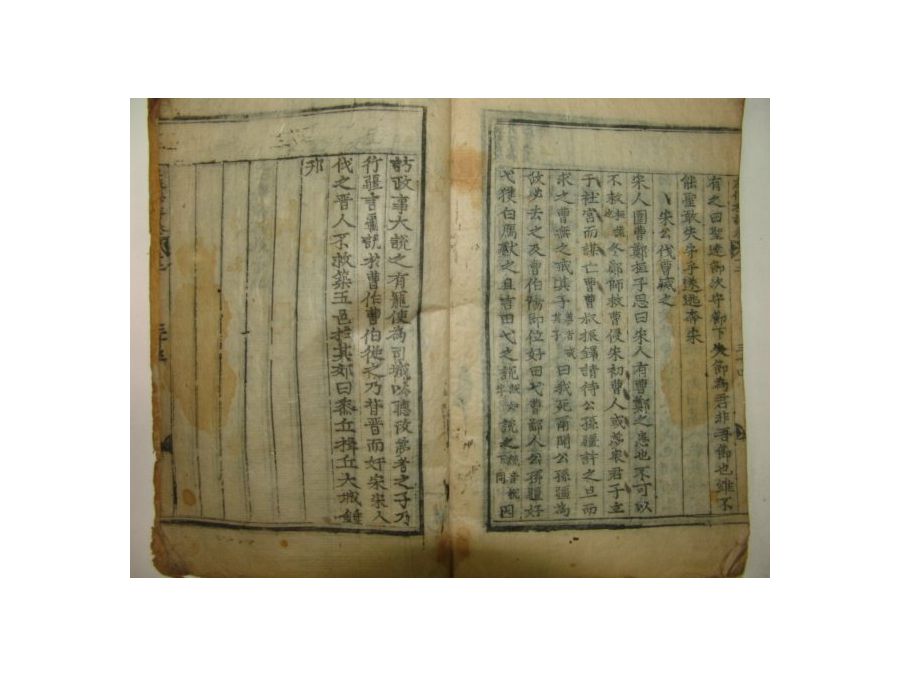 有之曰聖達節次守節下失節為君非吾節也雖不
能聖敢失守乎遂逃奔宋
宋公伐曹滅之
宋人圍曹鄭桓子思曰宋人有曹鄭之患也不可以
不救冬鄭師救曹侵宋初曹人或夢衆君子立
于社宮而謀亡曹曹叔振鐸請待公孫彊許之旦而
求之曹無之戒其子曰我死爾聞公孫彊為
政必去之及曹伯陽即位好田弋曹鄙人公孫彊好
弋獲白鴈獻之且言田弋之說說之因
訪政事大說之有寵使為司城以聽政夢者之子乃
行彊言霸說於曹伯曹伯從之乃背晋而奸宋宋人
伐之晋人不救築五邑於其郊曰黍丘揖丘大城鍾
邘